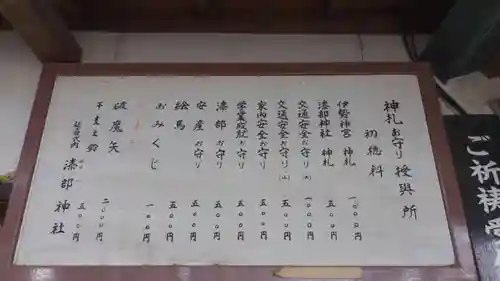 神札お守り授与所
初穂料
伊勢神宮 神札 一〇〇〇円
漆部神社 神札 五〇〇円
交通安全お守り(大) 一〇〇〇円
交通安全お守り(小) 五〇〇円
家内安全お守り 五〇〇円
学業成就お守り 五〇〇円
漆部お守り 五〇〇円
安産お守り 五〇〇円
絵馬 五〇〇円
おみくじ 一〇〇円
破魔矢 二〇〇〇円
干支土鈴 五〇〇円
漆部神社
ご祈祷